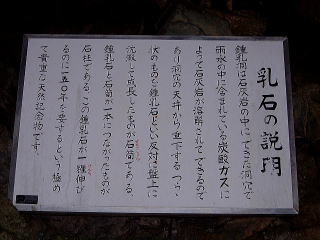 乳石の説明
鍾乳洞は石灰岩の中にできた洞穴で
雨水の中に含まれている炭酸ガスに
よって石灰岩が溶解されてできるので
あり洞穴の天井から垂下するつらゝ
状のものを鍾乳石といい反対に盤上に
沈澱して成長したものが石筍である。
鍾乳石と石筍が一本につながったものが
石柱である。この鍾乳石が一糎伸び
るのに一五〇年を要するという極め
て貴重な天然記念物です。